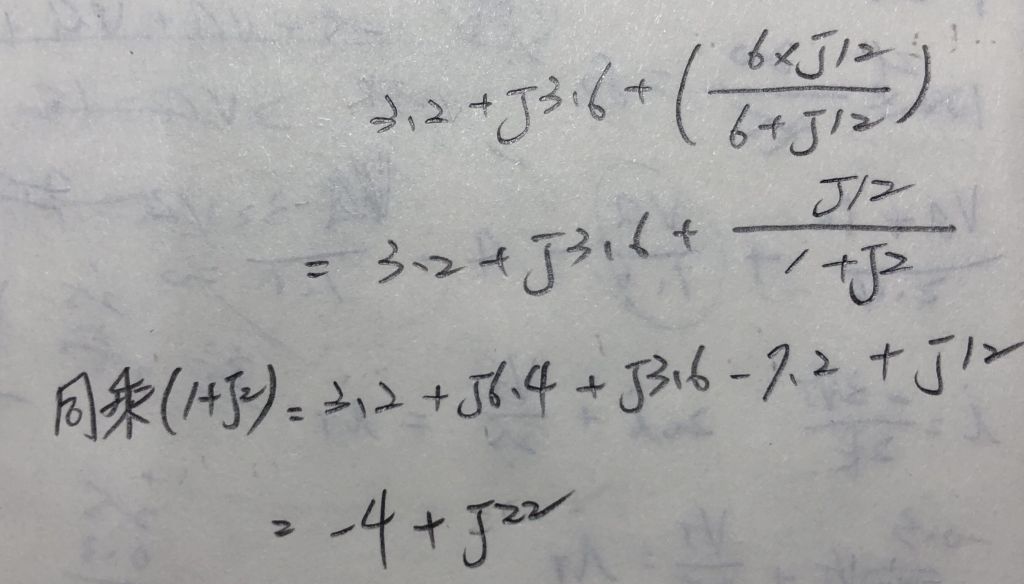 3.2 + J3.6 + (6×J12 / 6+J12)
= 3.2 + J3.6 + J12 / 1+J2
同乘(1+J2) = 3.2 + J6.4 + J3.6 - 7.2 + J12
= -4 + J22